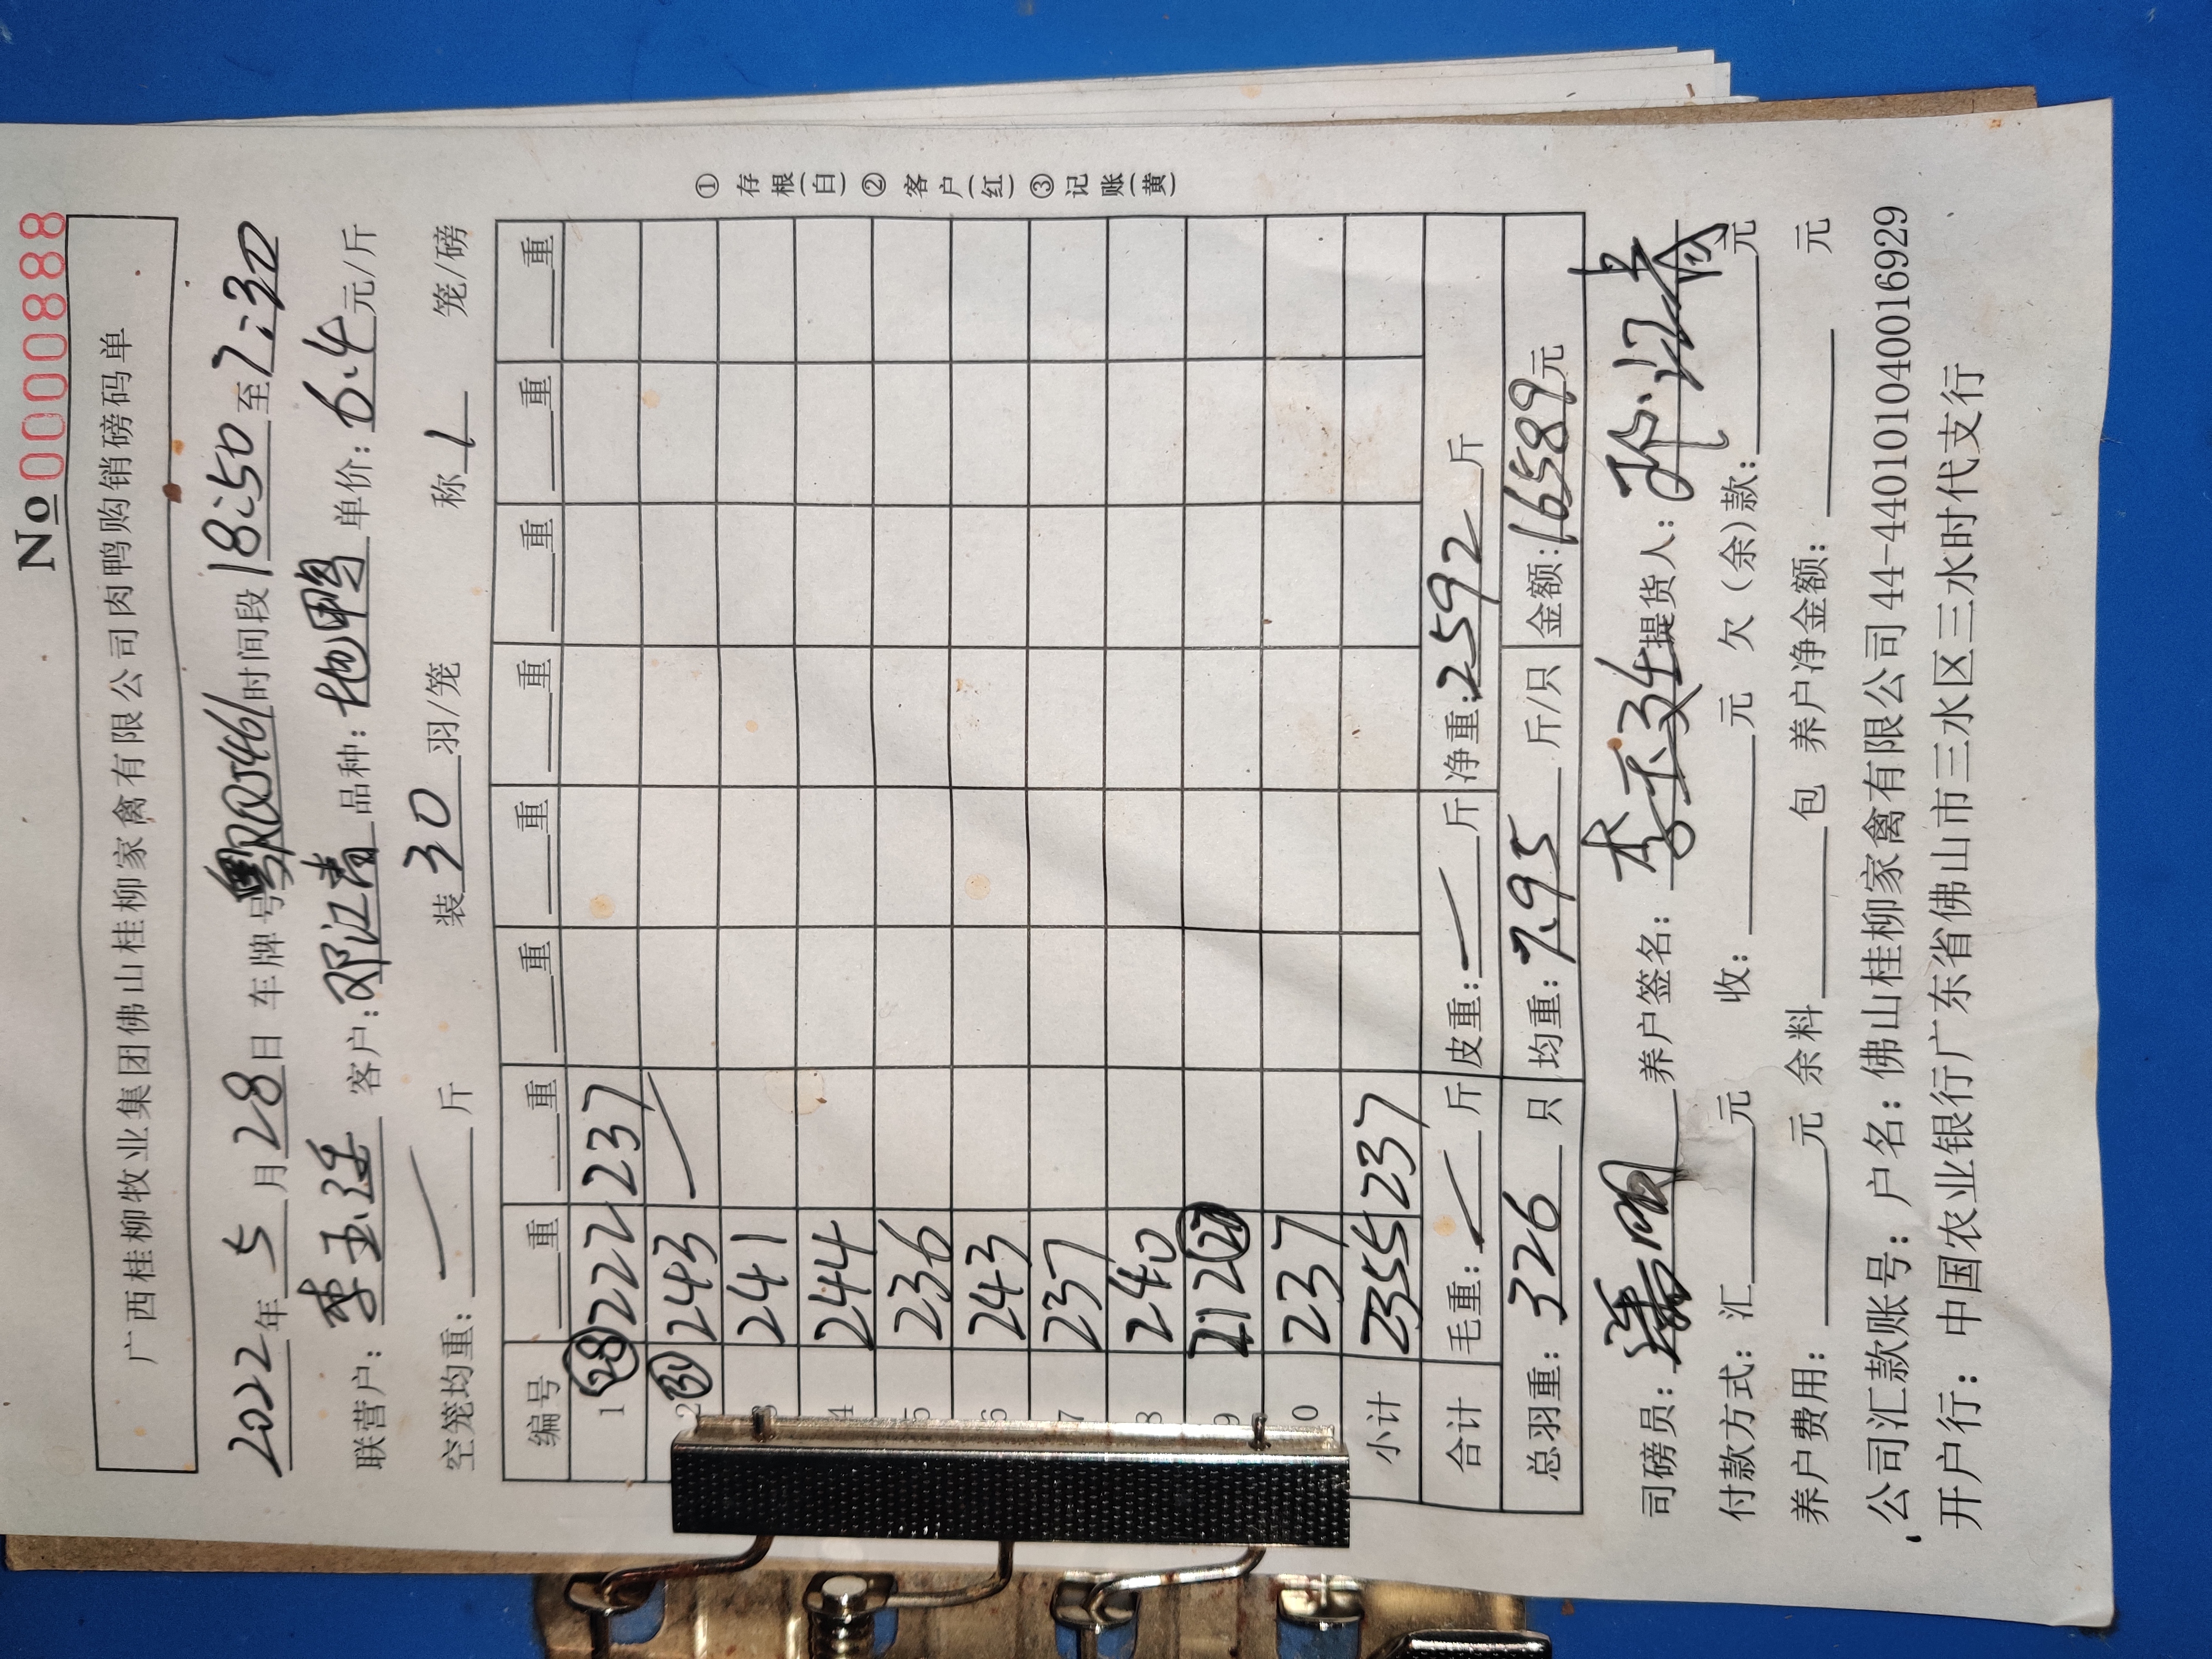 No 0000888
广西桂柳牧业集团佛山桂柳家禽有限公司肉鸭购销磅码单
2022年 5 月 28 日 车牌号 粤RQJ461 时间段 18:50 至 7:30
联营户: 李玉廷 客户: 邓江青 品种: 地鸭 单价: 6.4 元/斤
空笼均重: 斤 装 30 羽/笼 称 1 笼/磅
编号 重 重 重 重 重 重 重 重
1 (28) 222 237
2 (31) 243
3 241
4 244
5 236
6 243
7 237
8 240
9 212 (27)
0 237
小计 2355 237
合计 毛重: 斤 皮重: 斤 净重: 2592 斤
总羽重: 326 只 均重: 7.95 斤/只 金额: 16589 元
司磅员: 养户签名: 李玉廷 提货人:
付款方式: 汇 元 收: 元 欠(余)款: 元
养户费用: 元 余料 包 养户净金额: 元
公司汇款账号: 户名: 佛山桂柳家禽有限公司 44-440101040016929
开户行: 中国农业银行广东省佛山市三水区三水时代支行
① 存根(白) ② 客户(红) ③ 记账(黄)